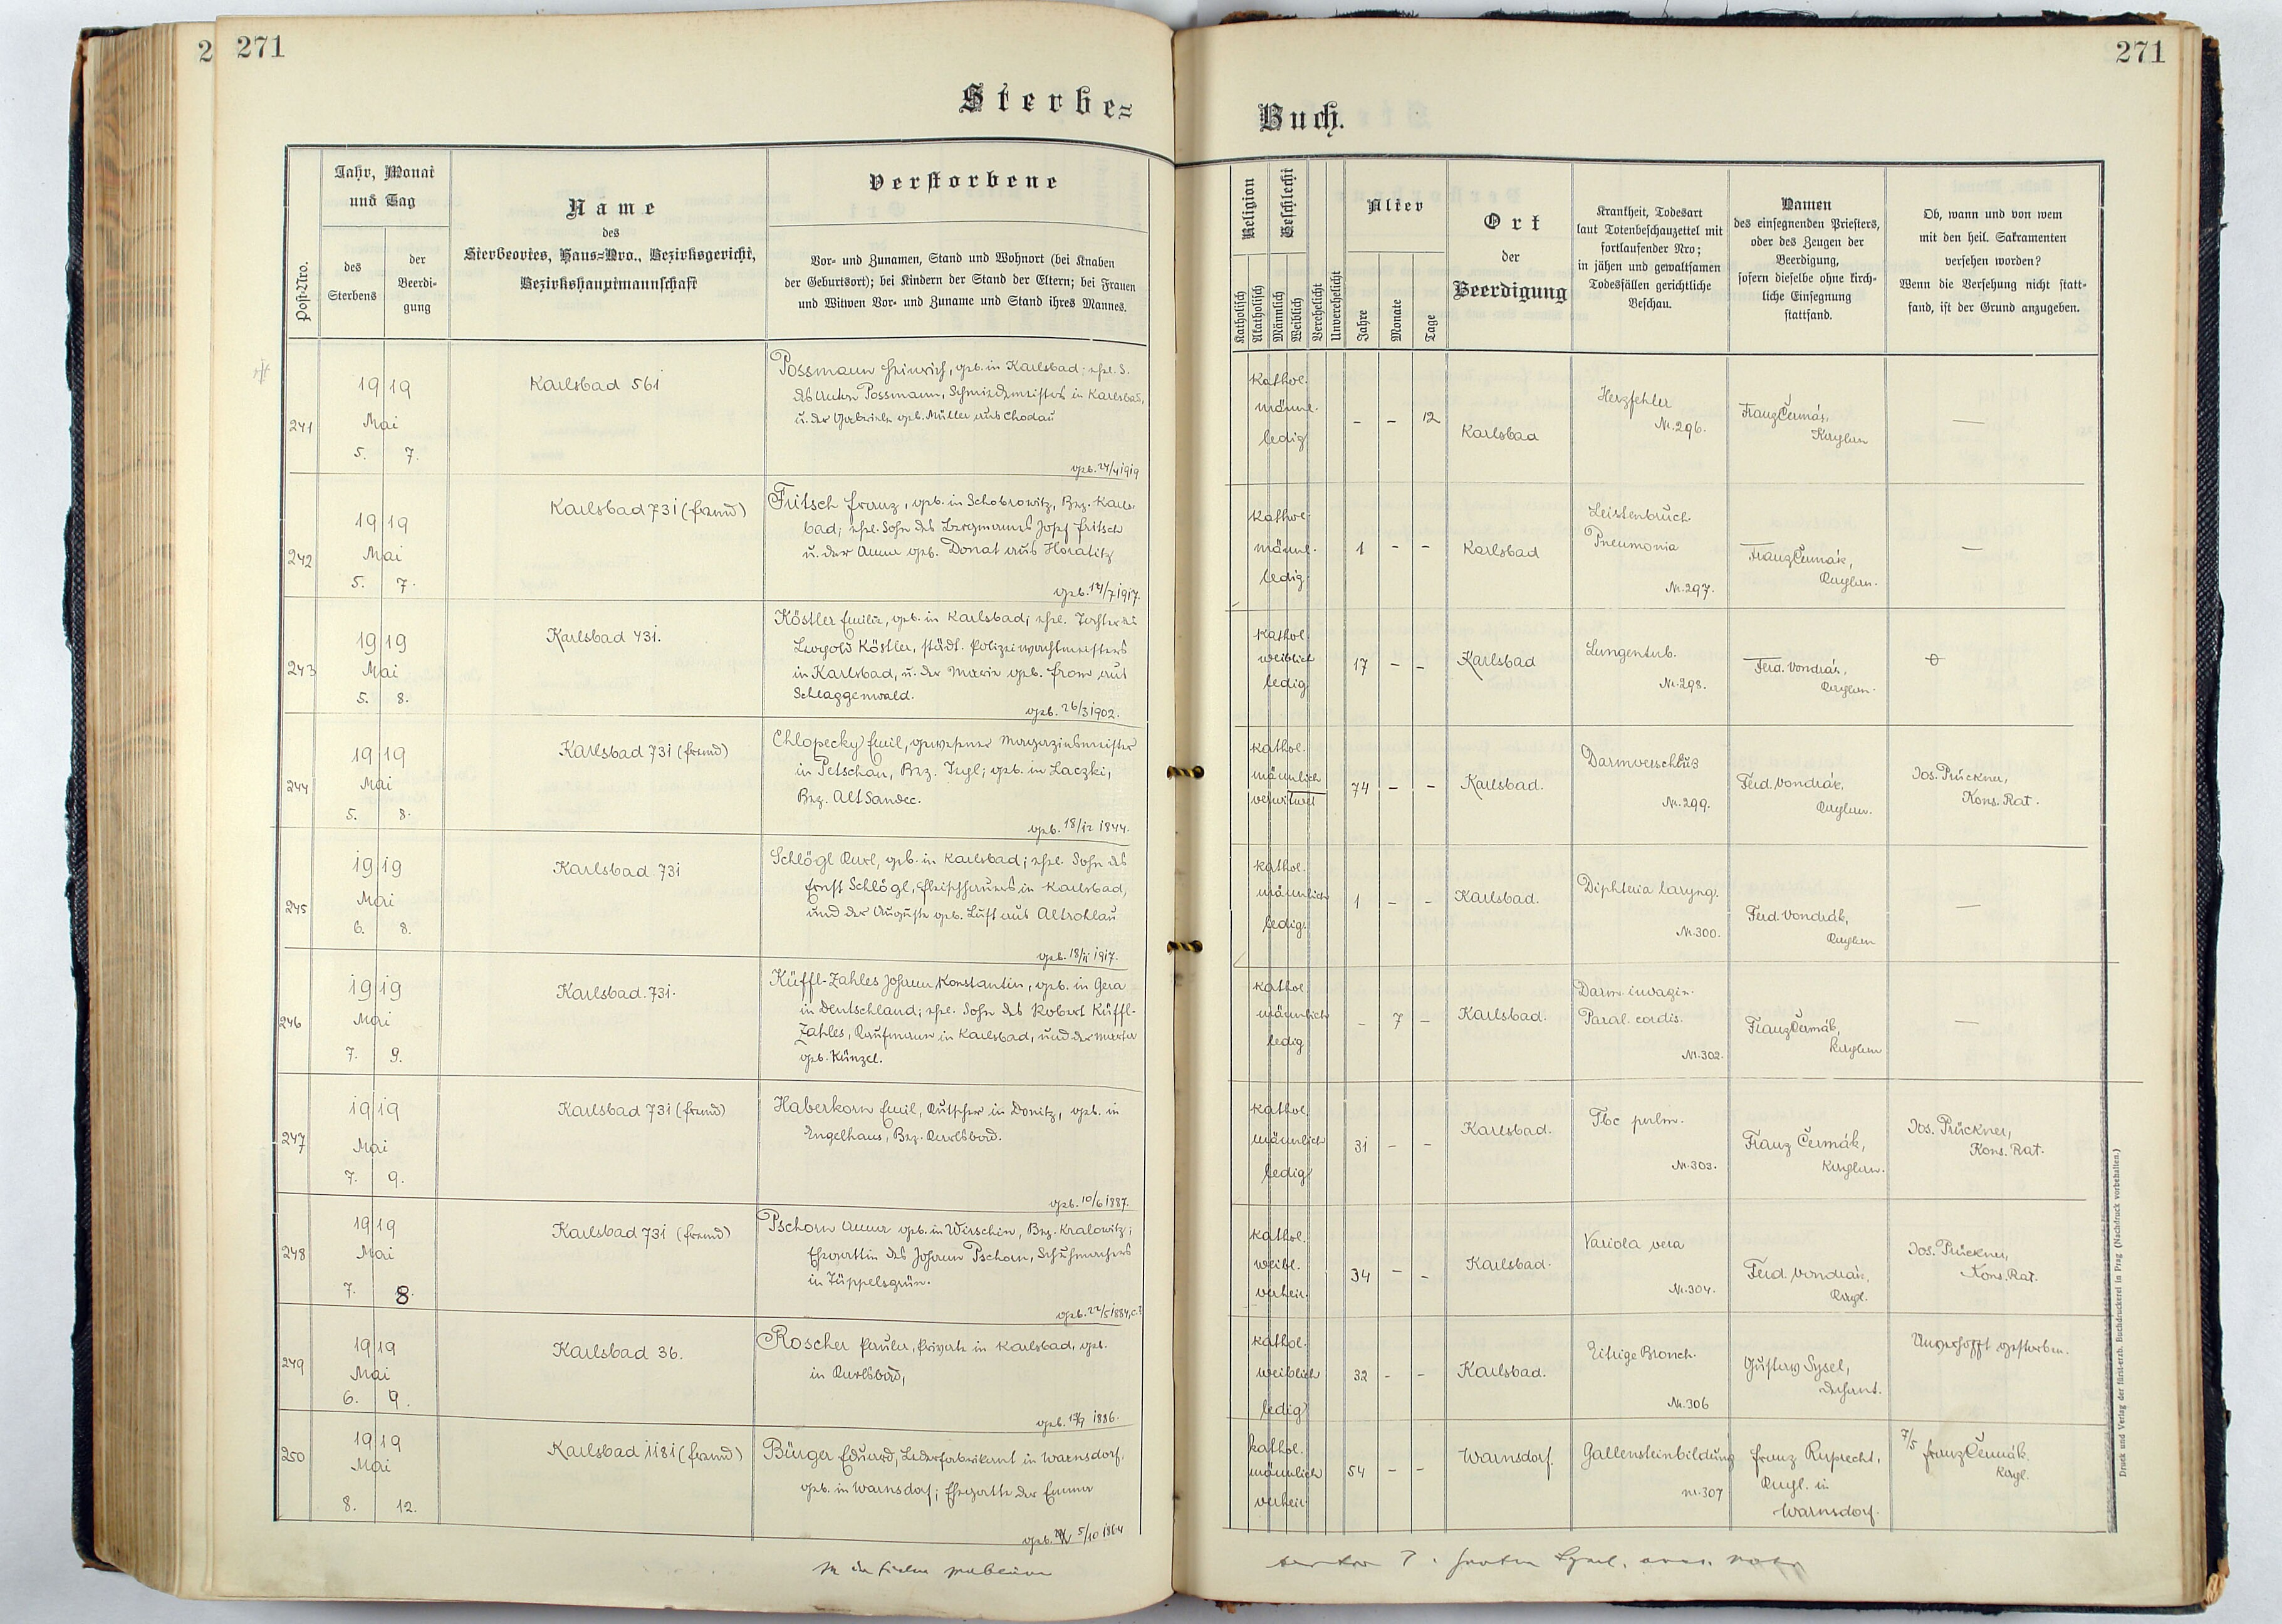 2 271
271
Sterbe=
Buch.
Post-Nro.
Jahr, Monat
und Tag
des
Sterbens
der
Beerdi-
gung
Name
des
Sterbeortes, Haus=Nro., Bezirksgericht,
Bezirkshauptmannschaft
Verstorbene
Vor- und Zunamen, Stand und Wohnort (bei Knaben
der Geburtsort); bei Kindern der Stand der Eltern; bei Frauen
und Witwen Vor- und Zuname und Stand ihres Mannes.
Religion
Katholisch
Akatholisch
Geschlecht
Männlich
Weiblich
Verehelicht
Unverehelicht
Alter
Jahre
Monate
Tage
Ort
der
Beerdigung
Krankheit, Todesart
laut Totenbeschauzettel mit
fortlaufender Nro;
in jähen und gewaltsamen
Todesfällen gerichtliche
Beschau.
Namen
des einsegnenden Priesters,
oder des Zeugen der
Beerdigung,
sofern dieselbe ohne kirch-
liche Einsegnung
stattfand.
Ob, wann und von wem
mit den heil. Sakramenten
versehen worden?
Wenn die Versehung nicht statt=
fand, ist der Grund anzugeben.
241
1919
Mai
5. 7.
Karlsbad 561
Possmann Heinrich, geb. in Karlsbad; ehel. S.
des Anton Possmann, Schmiedmeisters in Karlsbad,
u. der Gabriele geb. Müller aus Chodau
geb. 24/4 1919
kathol.
männl.
ledig
- - 12
Karlsbad
Herzfehler
Nr. 296.
Franz Čermák,
Kaplan
—
242
1919
Mai
5. 7.
Karlsbad 731 (fremd)
Fritsch Franz, geb. in Schobrowitz, Bez. Karls-
bad; ehel. Sohn des Bergmannes Josef Fritsch
u. der Anna geb. Donat aus Horatitz
geb. 14/7 1917.
kathol.
männl.
ledig
1 - -
Karlsbad
Leistenbruch.
Pneumonia
Nr. 297.
Franz Čermák,
Kaplan.
—
243
1919
Mai
5. 8.
Karlsbad 431.
Köstler Emilie, geb. in Karlsbad; ehel. Tochter des
Leopold Köstler, städt. Polizeiwachtmeisters
in Karlsbad, u. der Marie geb. From aus
Schlaggenwald.
geb. 26/3 1902.
kathol.
weiblich
ledig
17 - -
Karlsbad
Lungentub.
Nr. 298.
Ferd. Vondrák,
Kaplan.
244
1919
Mai
5. 8.
Karlsbad 731 (fremd)
Chlopecky Emil, gewesener Magazinsmeister
in Petschau, Bez. Tepl; geb. in Laczki,
Bez. Alt Sandec.
geb. 18/12 1844.
kathol.
männlich
verwitwet
74 - -
Karlsbad.
Darmverschluß
Nr. 299.
Ferd. Vondrák,
Kaplan.
Jos. Prückner,
Kons. Rat.
245
1919
Mai
6. 8.
Karlsbad 731
Schlögl Karl, geb. in Karlsbad; ehel. Sohn des
Ernst Schlögl, Fleischhauers in Karlsbad,
und der Auguste geb. Luft aus Altrohlau
geb. 18/11 1917.
kathol.
männlich
ledig.
1 - -
Karlsbad.
Diphteria laryng.
Nr. 300.
Ferd. Vondrák,
Kaplan
—
246
1919
Mai
7. 9.
Karlsbad. 731.
Küffl-Zahles Johann Konstantin, geb. in Gera
in Deutschland; ehel. Sohn des Robert Küffl-
Zahles, Kaufmann in Karlsbad, und der Marta
geb. Künzel.
kathol.
männlich
ledig
- 7 -
Karlsbad.
Darm. invagin.
Paral. cordis.
Nr. 302.
Franz Čermák,
Kaplan
—
247
1919
Mai
7. 9.
Karlsbad 731 (fremd)
Haberkorn Emil, Kutscher in Donitz, geb. in
Engelhaus, Bez. Karlsbad.
geb. 10/6 1887.
kathol.
männlich
ledig
31 - -
Karlsbad.
Tbc pulm.
Nr. 303.
Franz Čermák,
Kaplan.
Jos. Prückner,
Kons. Rat.
248
1919
Mai
7. 8.
Karlsbad 731 (fremd)
Pschorn Anna geb. in Wirschin, Bez. Kralowitz;
Ehegattin des Johann Pschorn, Schuhmachers
in Züppelsgrün.
geb. 22/5 1884,
kathol.
weibl.
verheir.
34 - -
Karlsbad.
Variola vera
Nr. 304.
Ferd. Vondrák,
Kapl.
Jos. Prückner,
Kons. Rat.
249
1919
Mai
6. 9.
Karlsbad 36.
Roscher Paula, Private in Karlsbad, geb.
in Karlsbad,
1886.
kathol.
weiblich
ledig
32 - -
Karlsbad.
Eitrige Bronch.
Nr. 306
Gustav Sysel,
Dechant.
Unverhofft gestorben.
250
1919
Mai
8. 12.
Karlsbad 1181 (fremd)
Bürger Eduard, Lederfabrikant in Warnsdorf,
geb. in Warnsdorf; Ehegatte der Emma
geb. 5/10 1864
kathol.
männlich
verheir.
54 - -
Warnsdorf.
Gallensteinbildung
Nr. 307
Franz Ruprecht,
Kapl. in
Warnsdorf.
7/5 Franz Čermák
Kapl.
Druck und Verlag der fürst-erzb. Buchdruckerei in Prag (Nachdruck vorbehalten.)